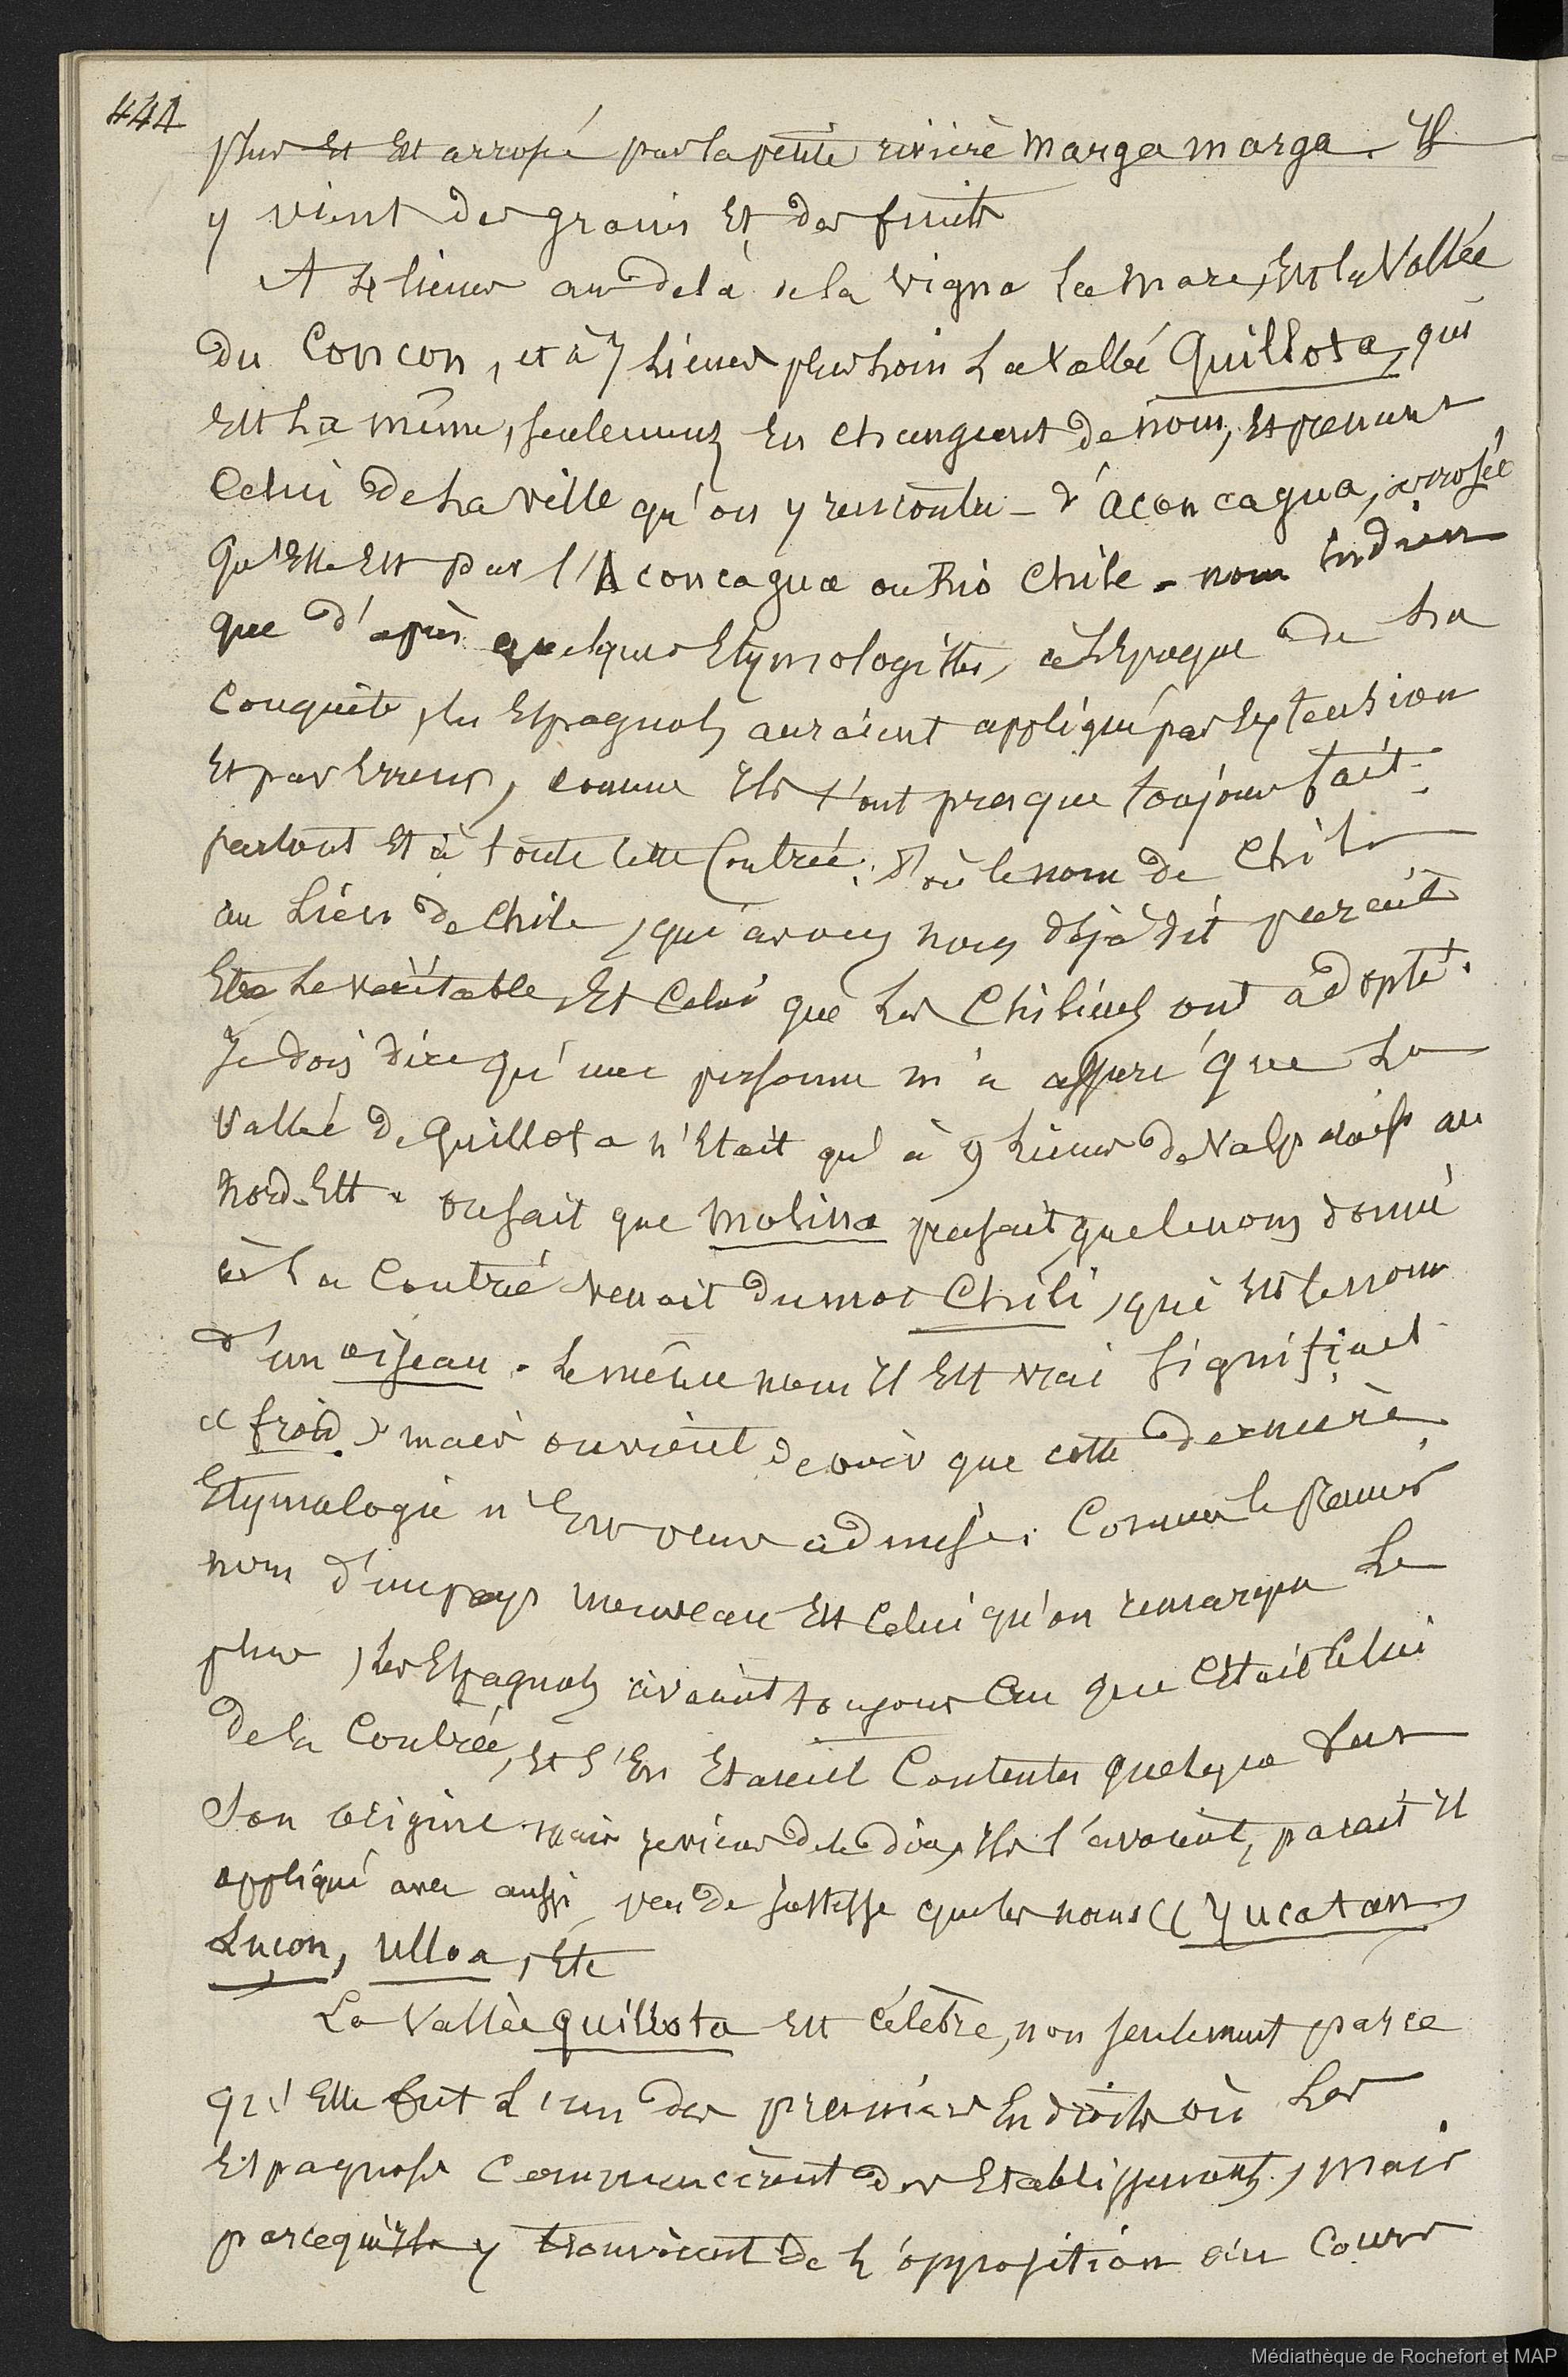 444
plus et est arrosé par la petite rivière Margamarga. Il
y vient des grains et des fruits
A 4 lieues au delà de la Vigna La Mare, est la Vallée
du Concon, et à 7 lieues plus loin La Vallée Quillota, qui
est La même, seulement en changeant de nom, et prenant
Celui de La ville qu'on y rencontre - d'Aconcagua, arrosée
qu'elle est par l'Aconcagua ou Rio Chile - nom indien
que d'après quelques Etymologistes, à L'Epoque de La
Conquête, les Espagnols auraient appliqué par Extension
et par Erreur, comme ils l'ont presque toujours fait
partout et à toute cette Contrée; d'où le nom de Chili
au Lieu de Chile, qui avons nous déjà dit parait
Etre Le véritable, et Celui que Les Chiliens ont adopté.
Je dois dire qu'une personne m'a assuré que La
Vallée de Quillota n'était qu'à 9 Lieues de Valparaiso au
Nord-Est. On sait que Molina pensait que le nom donné
à La Contrée venait du mot Chili, qui est le nom
d'un oiseau. Le même nom il est vrai signifiait
" froid " mais on vient de voir que cette dernière
Etymologie n'est pas admise. Comme le premier
nom d'un pays nouveau est Celui qu'on remarque Le
plus, Les Espagnols avaient toujours Cru que C'était Celui
de la Contrée, et s'en étaient Contentés quelque fut
son origine mais je viens de le dire, ils l'avaient, parait il
appliqué avec aussi peu de justesse que les noms (( Yucatan,
Luçon, Ulloa, Etc
La Vallée Quillota est célèbre, non seulement parce
qu'Elle fut L'un des premiers Endroits où Les
Espagnols Commencèrent des Etablissements, mais
parcequ'ils y trouvèrent de L'opposition au Cours
Médiathèque de Rochefort et MAP